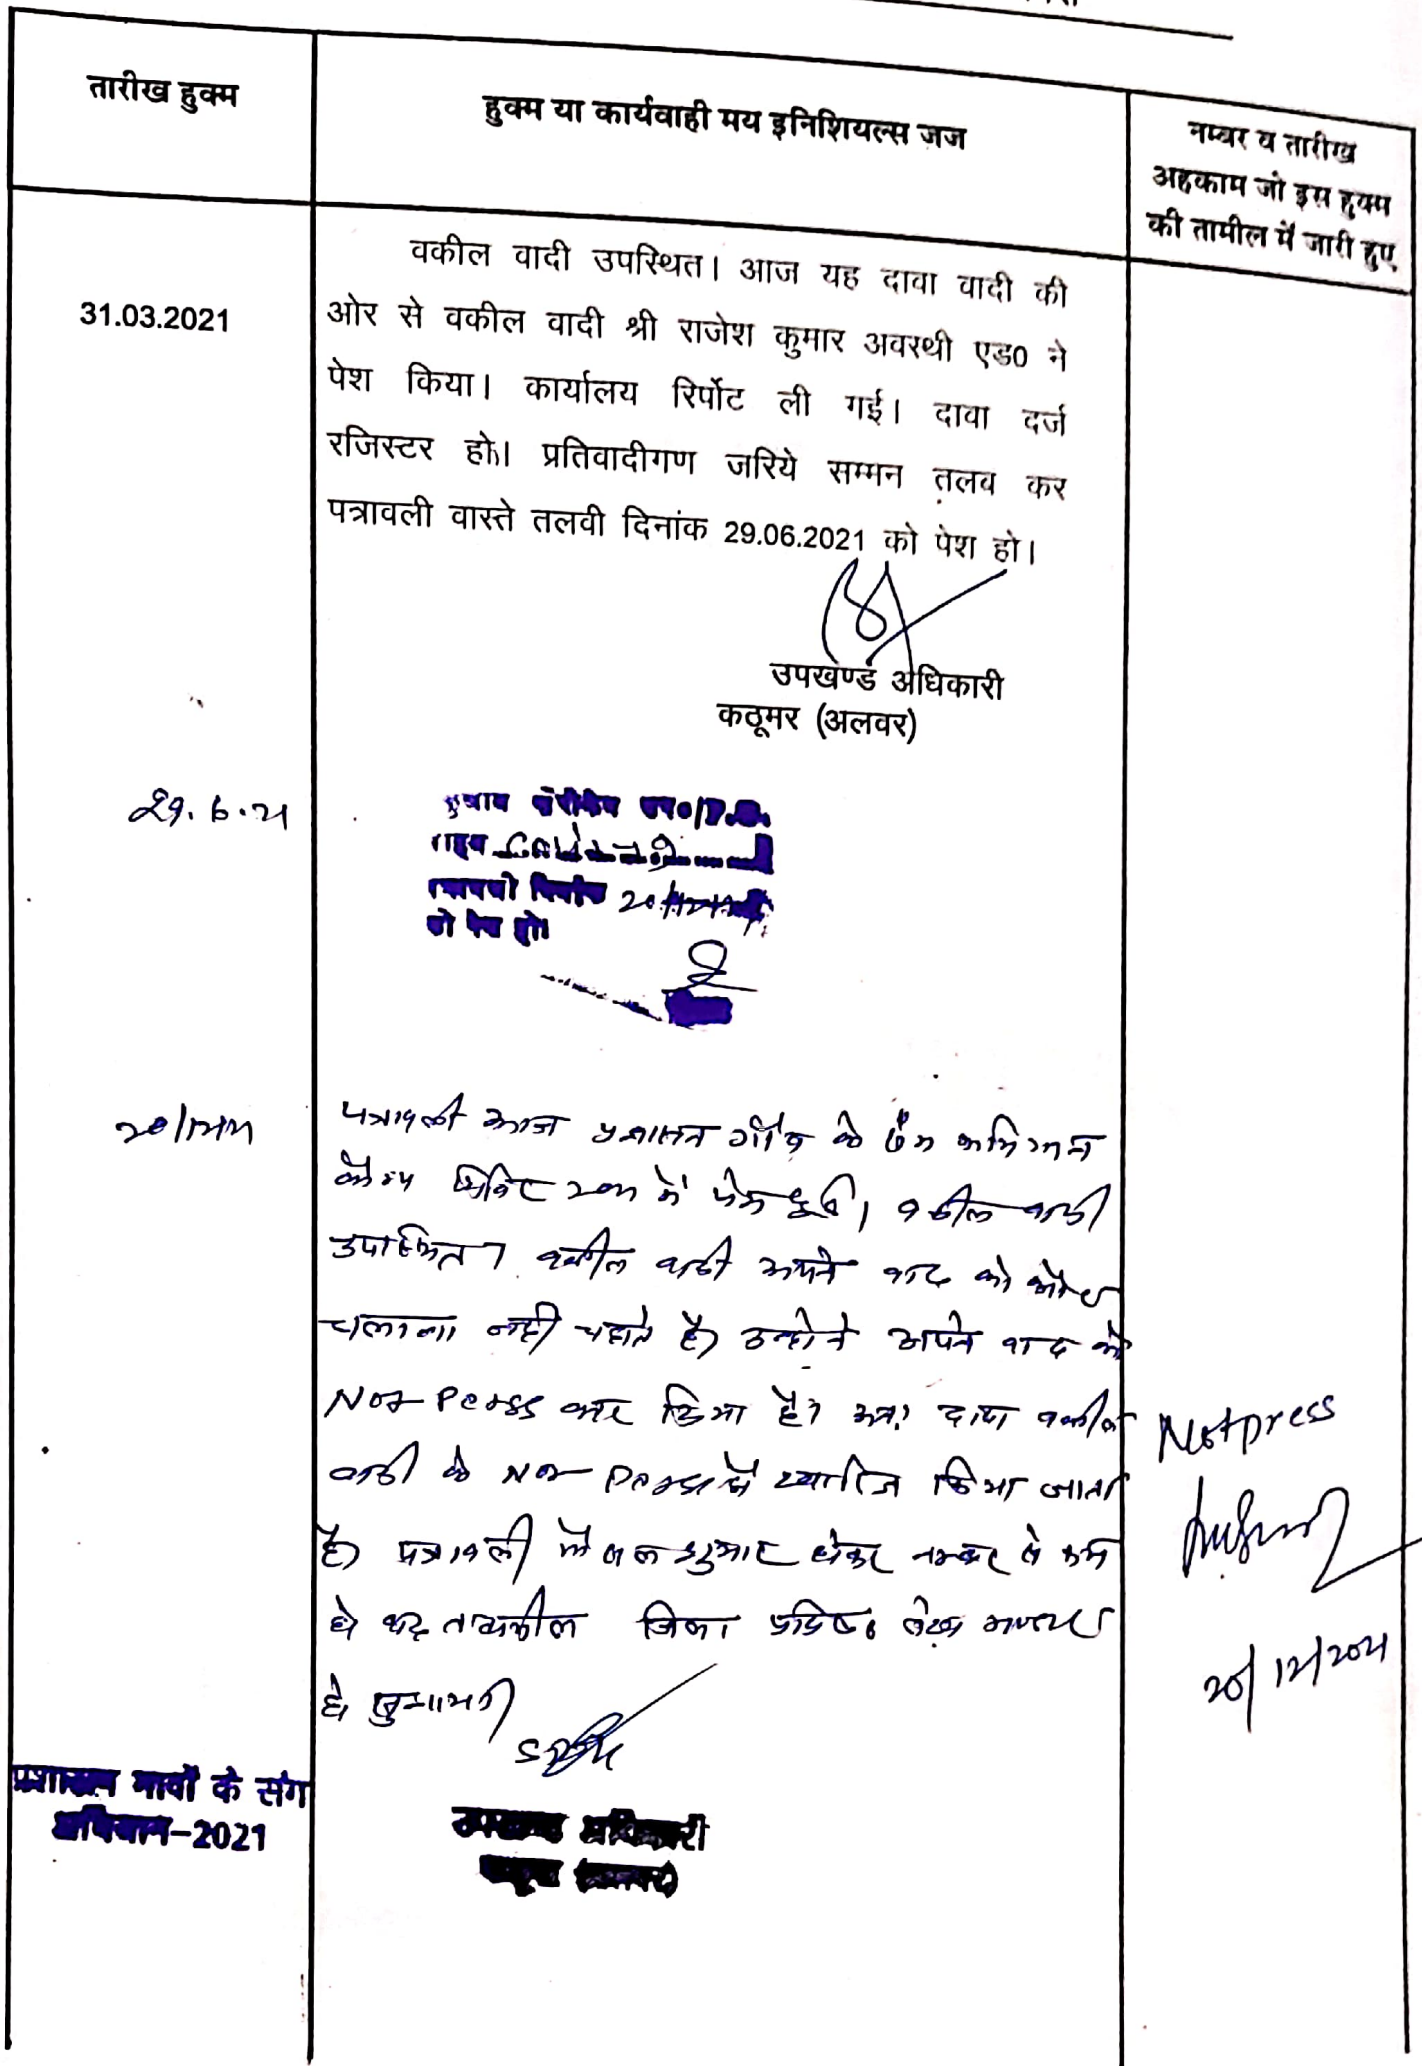 तारीख हुक्म
हुक्म या कार्यवाही मय इनिशियल्स जज
नम्बर व तारीख
अहकाम जो इस हुक्म
की तामील में जारी हुए
31.03.2021
वकील वादी उपस्थित। आज यह दावा वादी की
ओर से वकील वादी श्री राजेश कुमार अवस्थी एड0 ने
पेश किया। कार्यालय रिर्पोट ली गई। दावा दर्ज
रजिस्टर हो। प्रतिवादीगण जरिये सम्मन तलव कर
पत्रावली वास्ते तलवी दिनांक 29.06.2021 को पेश हो।
उपखण्ड अधिकारी
कठूमर (अलवर)
29.6.21
को पेश हो।
पत्रावली आज प्रशासन गाँव के संग अभियान
कैम्प शिविर में पेश हुई। वकील वादी
उपस्थित। वकील वादी अपने वाद को और
चलाना नही चहाते है। उन्होने अपने वाद को
Not Perss कर दिया है। अतः दावा वकील
वादी के Not Perss में ख्यारिज किया जाता
है। पत्रावली फैसल शुमार होकर नम्बर से कम
हो बाद तकमील लेख
हो
Notpress
20/12/2021
प्रशासन गावों के संग
अभियान-2021
उपखण्ड अधिकारी